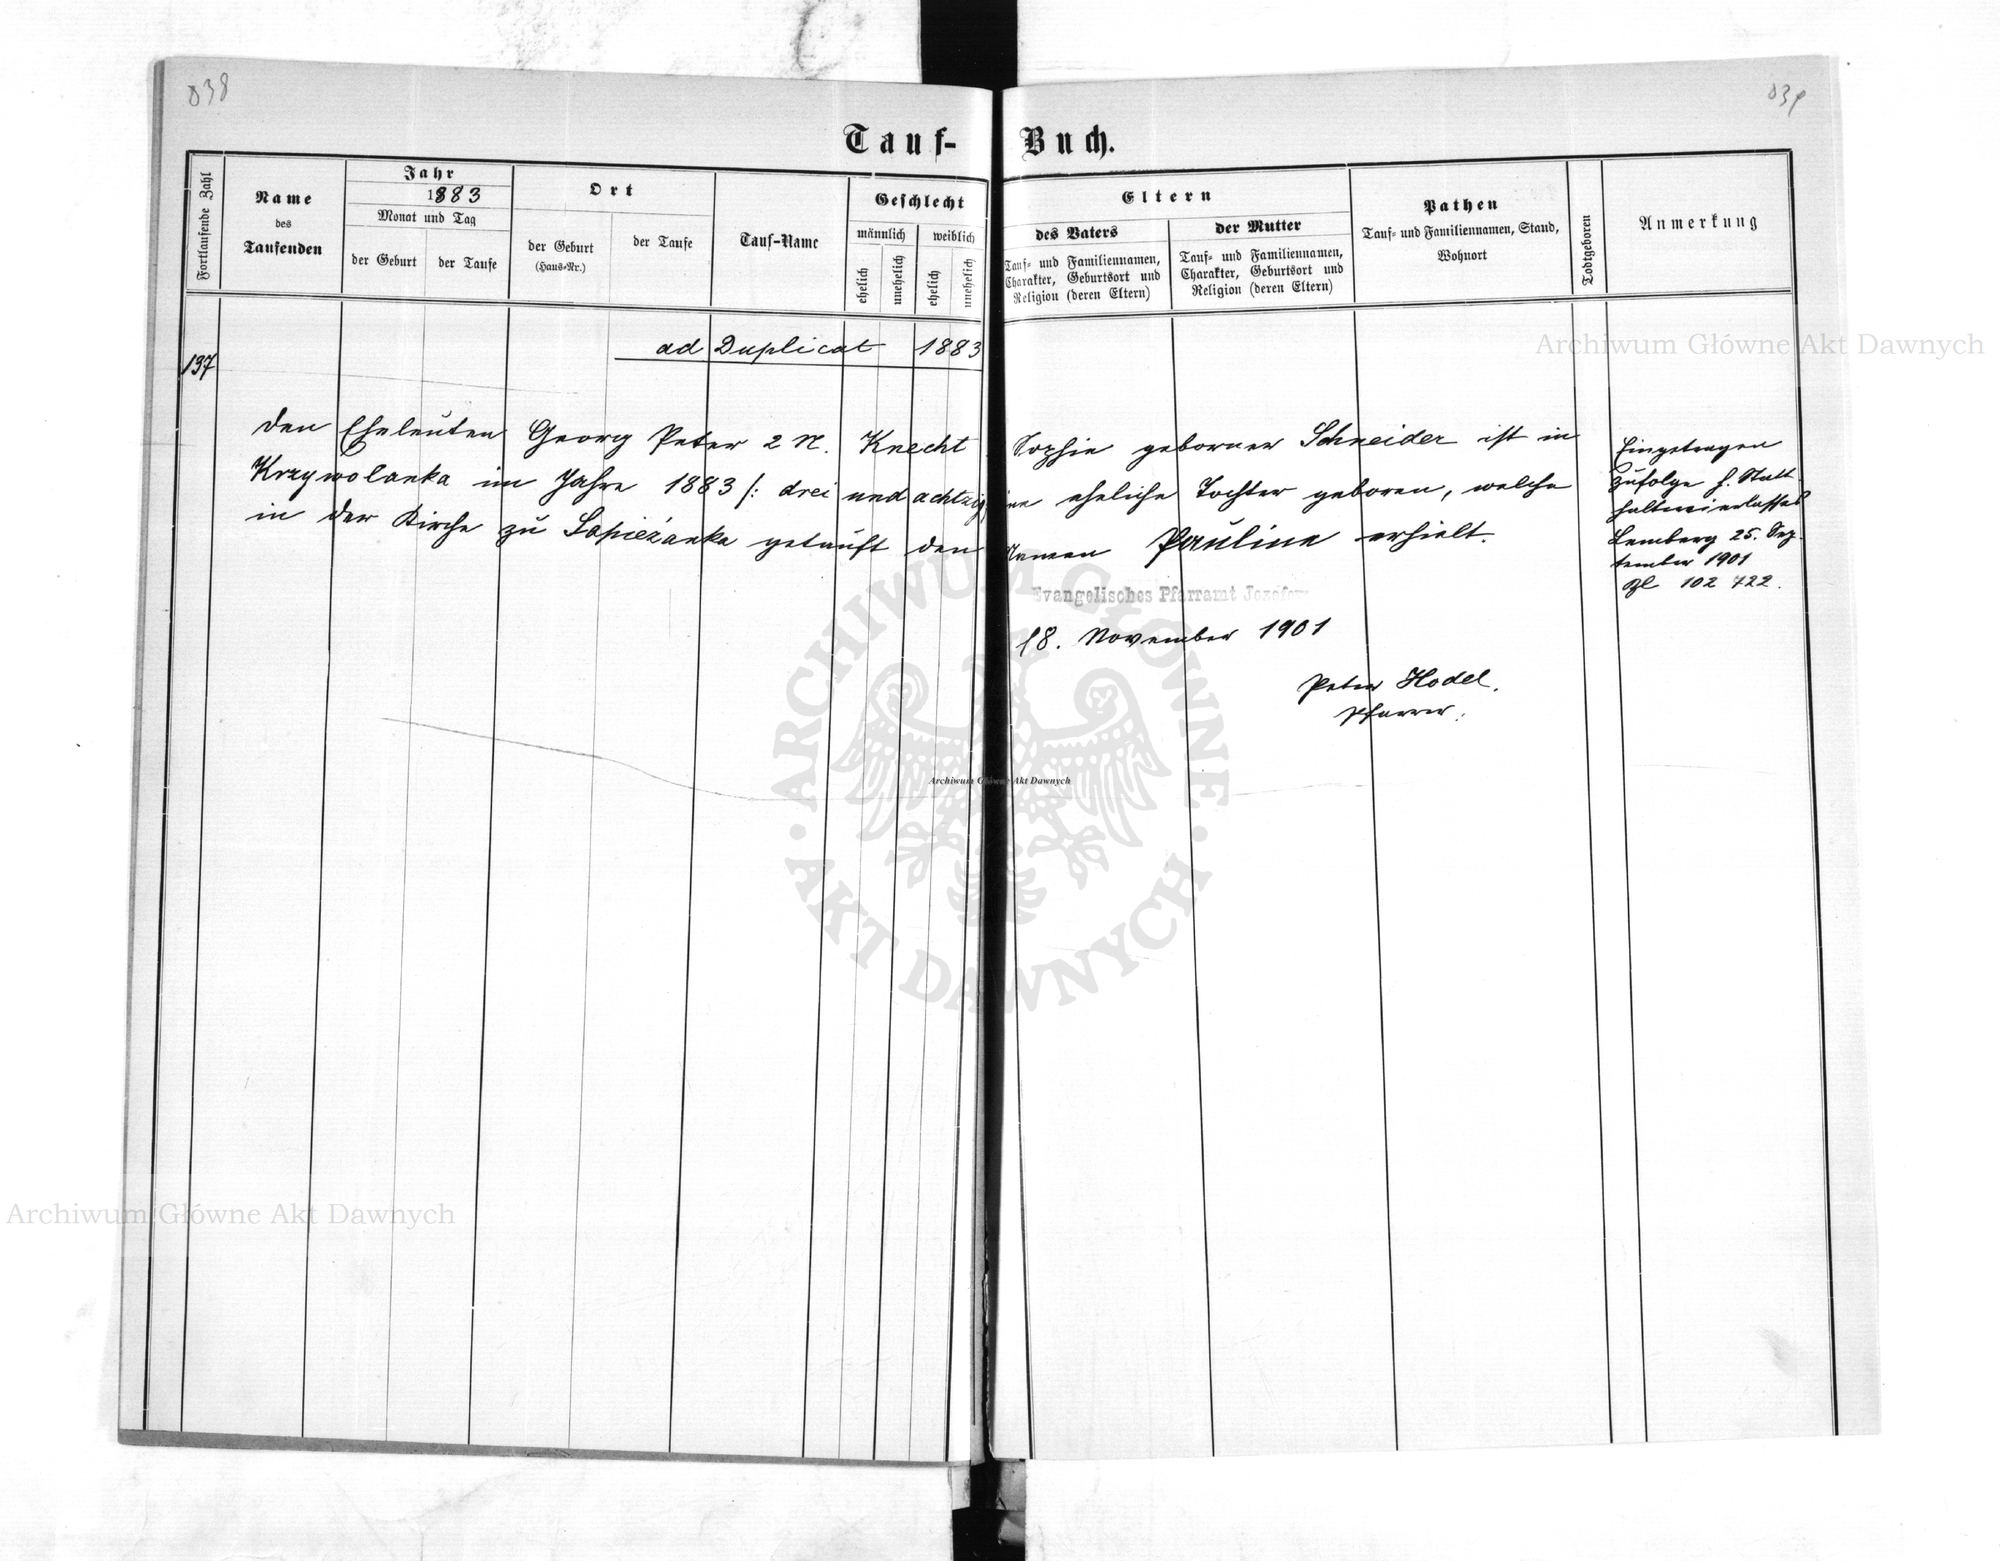 038
039
Tauf-Buch.
Fortlaufende Zahl
Name
des
Taufenden
Jahr
1883
Monat und Tag
der Geburt
der Taufe
Ort
der Geburt
(Haus-Nr.)
der Taufe
Tauf-Name
Geschlecht
männlich
weiblich
ehelich
unehelich
ehelich
unehelich
Eltern
des Vaters
Tauf- und Familiennamen,
Charakter, Geburtsort und
Religion (deren Eltern)
der Mutter
Tauf- und Familiennamen,
Charakter, Geburtsort und
Religion (deren Eltern)
Pathen
Tauf- und Familiennamen, Stand,
Wohnort
Todtgeboren
Anmerkung
ad Duplicat 1883
137
den Eheleuten Georg Peter 2 N. Knecht Sophie geborner Schneider ist in
Krzywolanka im Jahre 1883 /: drei und achtzig eine eheliche Tochter geboren, welche
in der Kirche zu Sapieżanka getauft den Namen Pauline erhielt.
Eingetragen
zufolge h. Statt-
haltereierlasses
Lemberg 25. Sep-
tember 1901
Zl 102 722.
Evangelisches Pfarramt Jozefow
18. November 1901
Peter Hodel.
Pfarrer.
Archiwum Główne Akt Dawnych
ARCHIWUM GŁÓWNE
AKT DAWNYCH
Archiwum Główne Akt Dawnych
Archiwum Główne Akt Dawnych